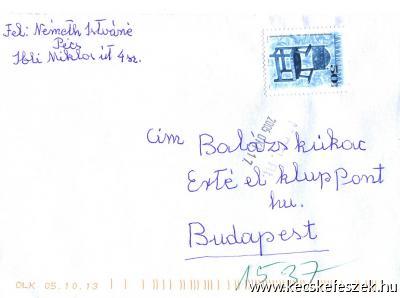 Fel: Németh Istváné
Pécs
Ibli Miklos út 4sz.
Cím Balázskukac
Exté el kluppont
hu.
Budapest
1537
OLK 05.10.13
www.kecskefeszek.hu